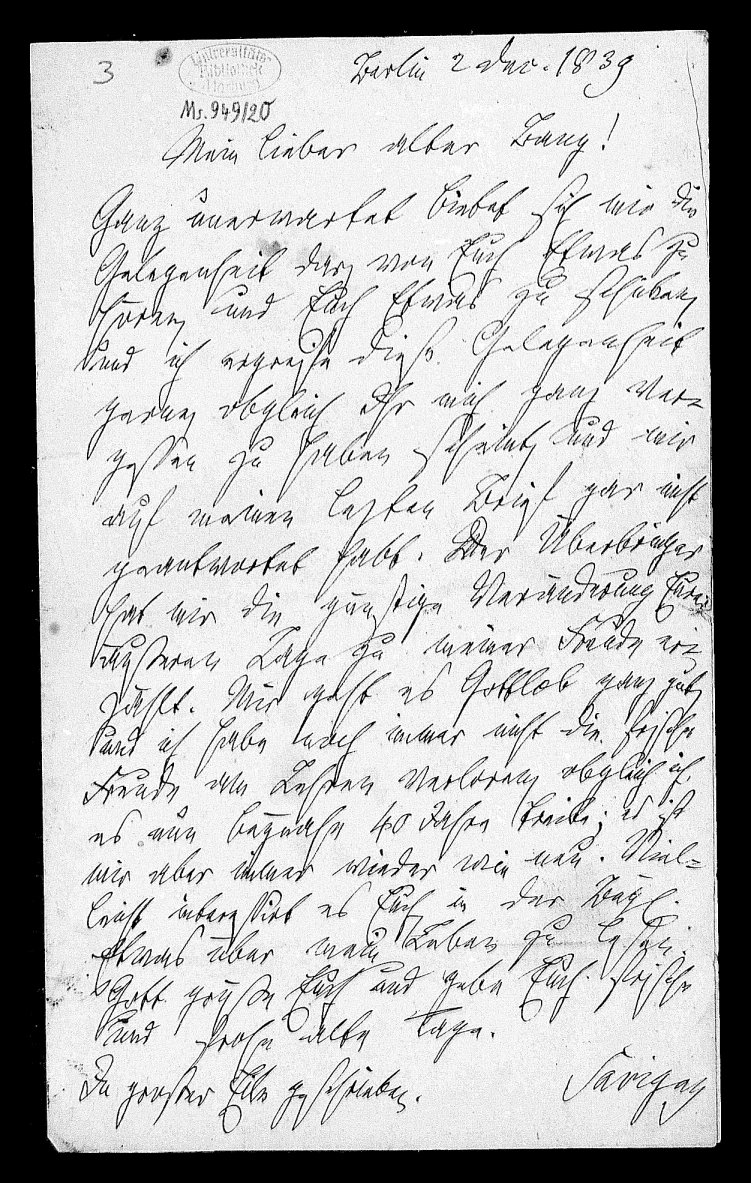 3
Universitäts-
Bibliothek
Marburg
Ms. 949/20
Berlin 2 Dec. 1839
Mein lieber alter Bang!
Ganz unerwartet bietet sich mir die
Gelegenheit dar, von Euch Etwas zu
hören und Euch Etwas zu schreiben,
und ich ergreife diese Gelegenheit
gerne, obgleich Ihr mich ganz ver-
gessen zu haben scheint, und mir
auf meinen lezten Brief gar nicht
geantwortet habt. Der Überbringer
hat mir die günstige Veränderung Eurer
äußeren Lage zu meiner Freude er-
zählt. Mir geht es Gottlob ganz gut,
und ich habe noch immer nicht die frische
Freude am Lehren verloren, obgleich ich
es nun beynahe 40 Jahre treibe; es ist
mir aber immer wieder wie neu. Viel-
leicht interessirt es Euch in der
Etwas über mein Leben zu lesen.
Gott grüße Euch und gebe Euch frische
und frohe alte Tage.
In großer Eile geschrieben.
Savigny